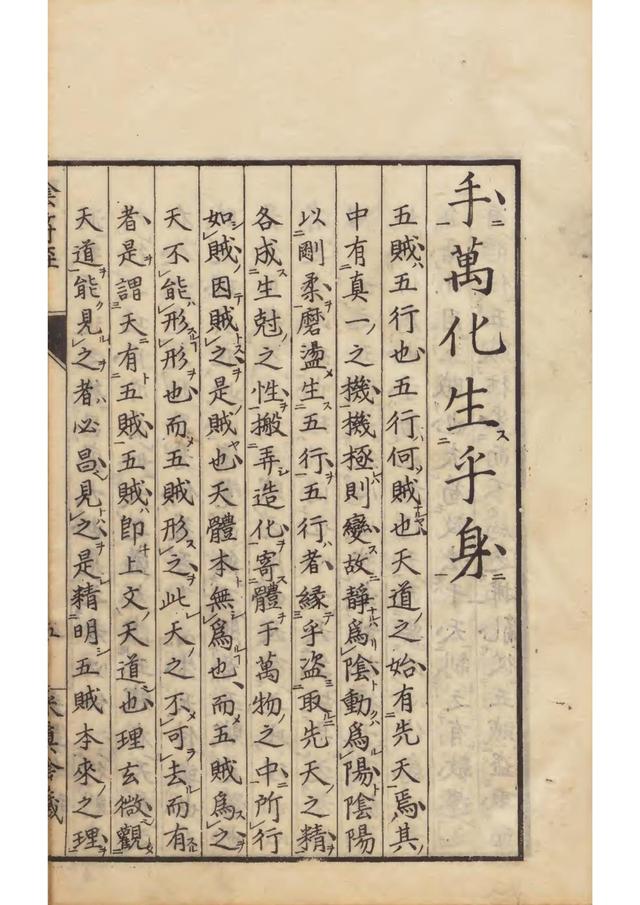 手萬化生乎身
五賊五行也五行何賊也天道之始有先天焉其
中有真一之機機極則變故靜爲陰動爲陽陰陽
以剛柔磨盪生五行五行者緣乎盜取先天之精
各成生尅之性搬弄造化寄體于萬物之中所行
如賊因賊之是賊也天體本無爲也而五賊爲之
天不能形形也而五賊形之此天之不可去而有
者是謂天有五賊五賊即上文天道也理玄微觀
天道能見之者必昌見之是精明五賊本來之理
陰符經
五